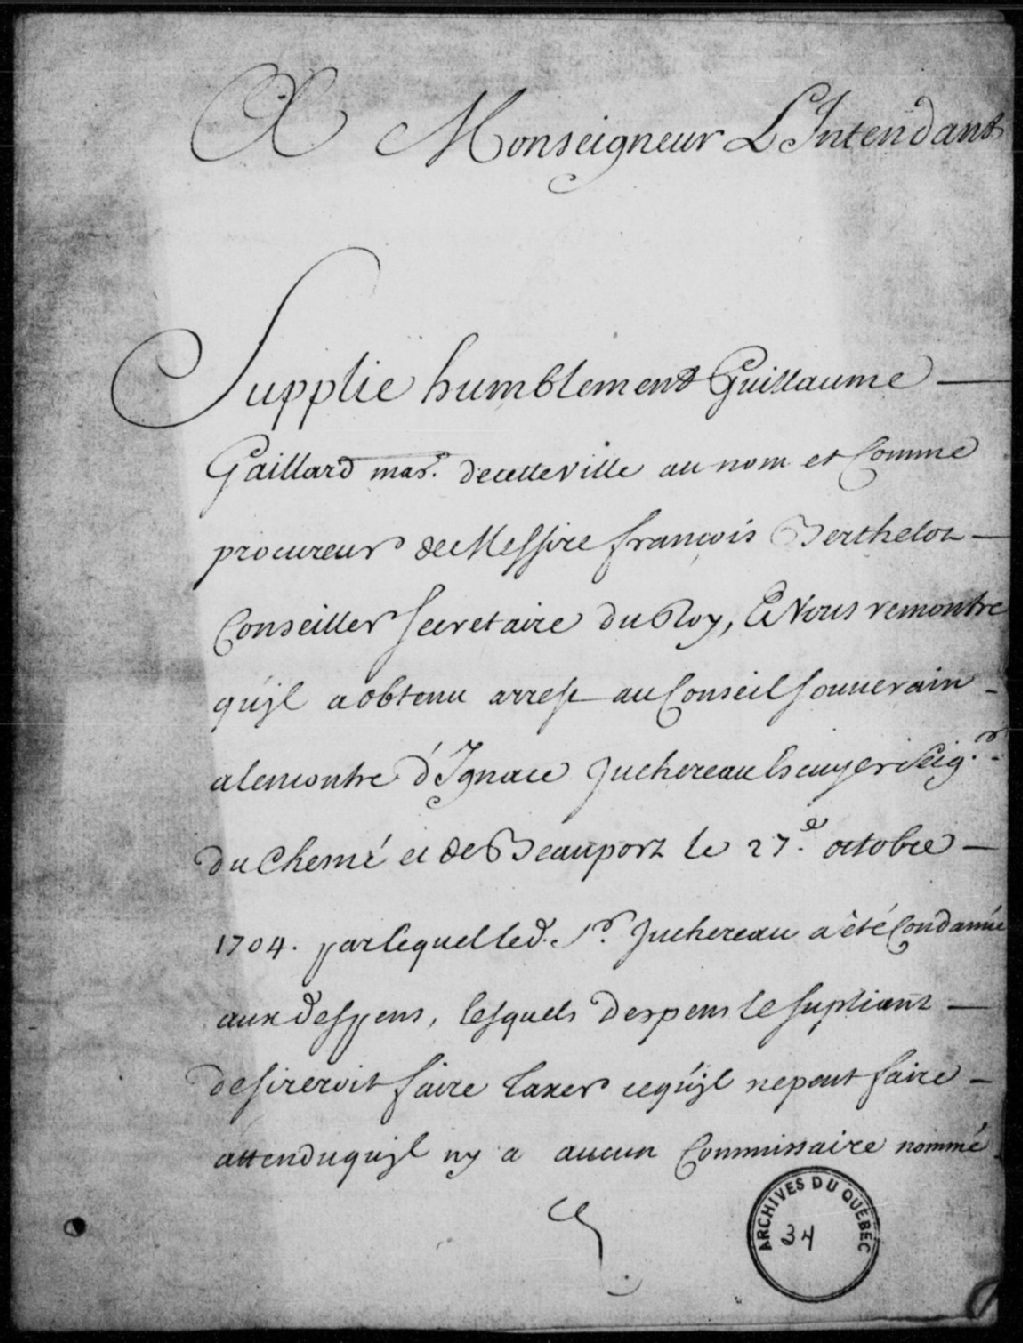 A Monseigneur L'Intendant
Supplie humblement Guillaume
Gaillard mar.d decette ville au nom et Comme
procureur de Messire françois Berthelot
Conseiller secretaire du Roy, Et Vous remontre
qu'jl a obtenu arrest au Conseil souuerain
alencontre d'Ignace Juchereau Escuyer Seig.r
du Chesné et de Beauport le 27.e octobre
1704. par lequel led. Sr. Juchereau a été Condamné
aux despens, lesquels despens le supliant
desireroit faire taxer ce qu'jl ne peut faire
attendu qu'jl ny a aucun Commissaire nommé
ARCHIVES DU QUÉBEC
34